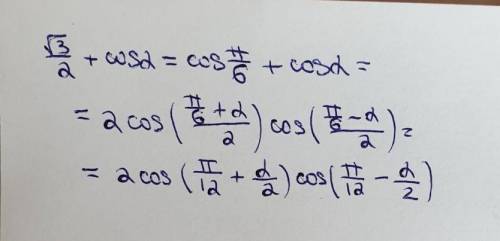 √3/2 + cosα = cos π/6 + cosα =
= 2cos((π/6 + α)/2) cos((π/6 − α)/2) =
= 2cos(π/12 + α/2) cos(π/12 − α/2)